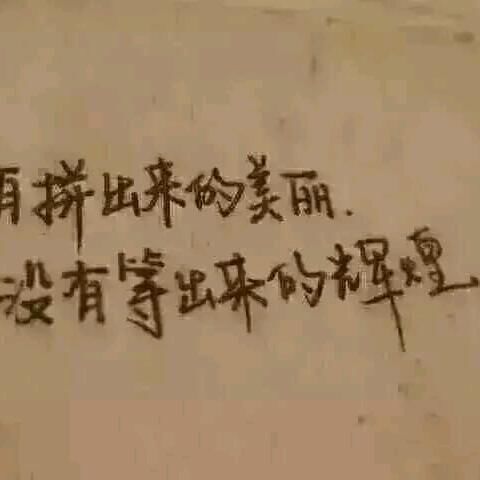 有拼出来的美丽.
没有等出来的辉煌